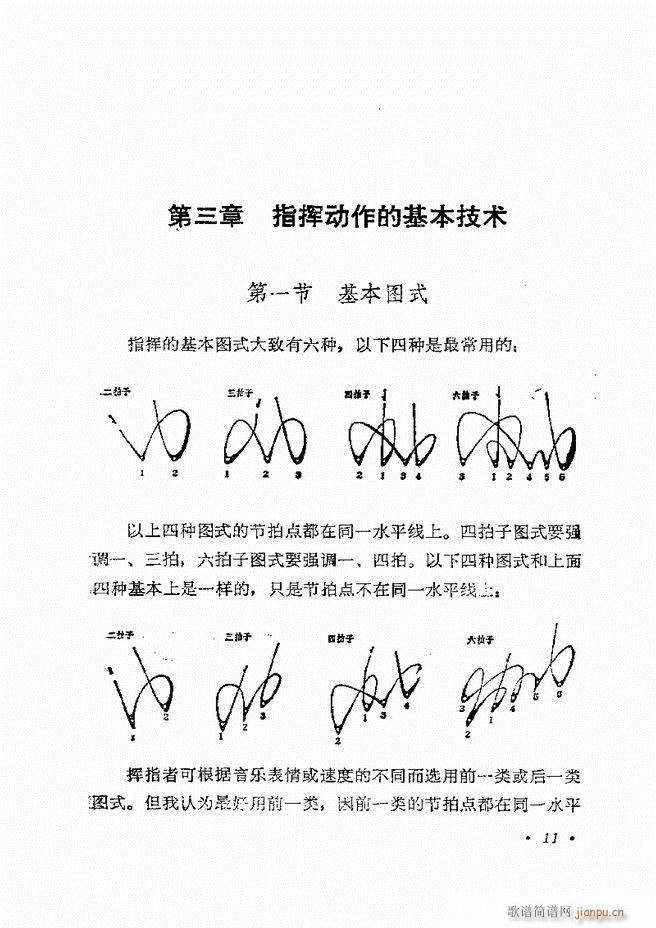 第三章 指挥动作的基本技术
第一节 基本图式
指挥的基本图式大致有六种，以下四种是最常用的：
二拍子 三拍子 四拍子 六拍子
1 2 1 2 3 2 1 3 4 3 1 2 4 5 6
以上四种图式的节拍点都在同一水平线上。四拍子图式要强
调一、三拍，六拍子图式要强调一、四拍。以下四种图式和上面
四种基本上是一样的，只是节拍点不在同一水平线上：
二拍子 三拍子 四拍子 六拍子
1 2 1 2 3 2 1 3 4 3 2 1 4 5 6
挥指者可根据音乐表情或速度的不同而选用前一类或后一类
图式。但我认为最好用前一类，因前一类的节拍点都在同一水平
· 11 ·
歌谱简谱网 jianpu.cn